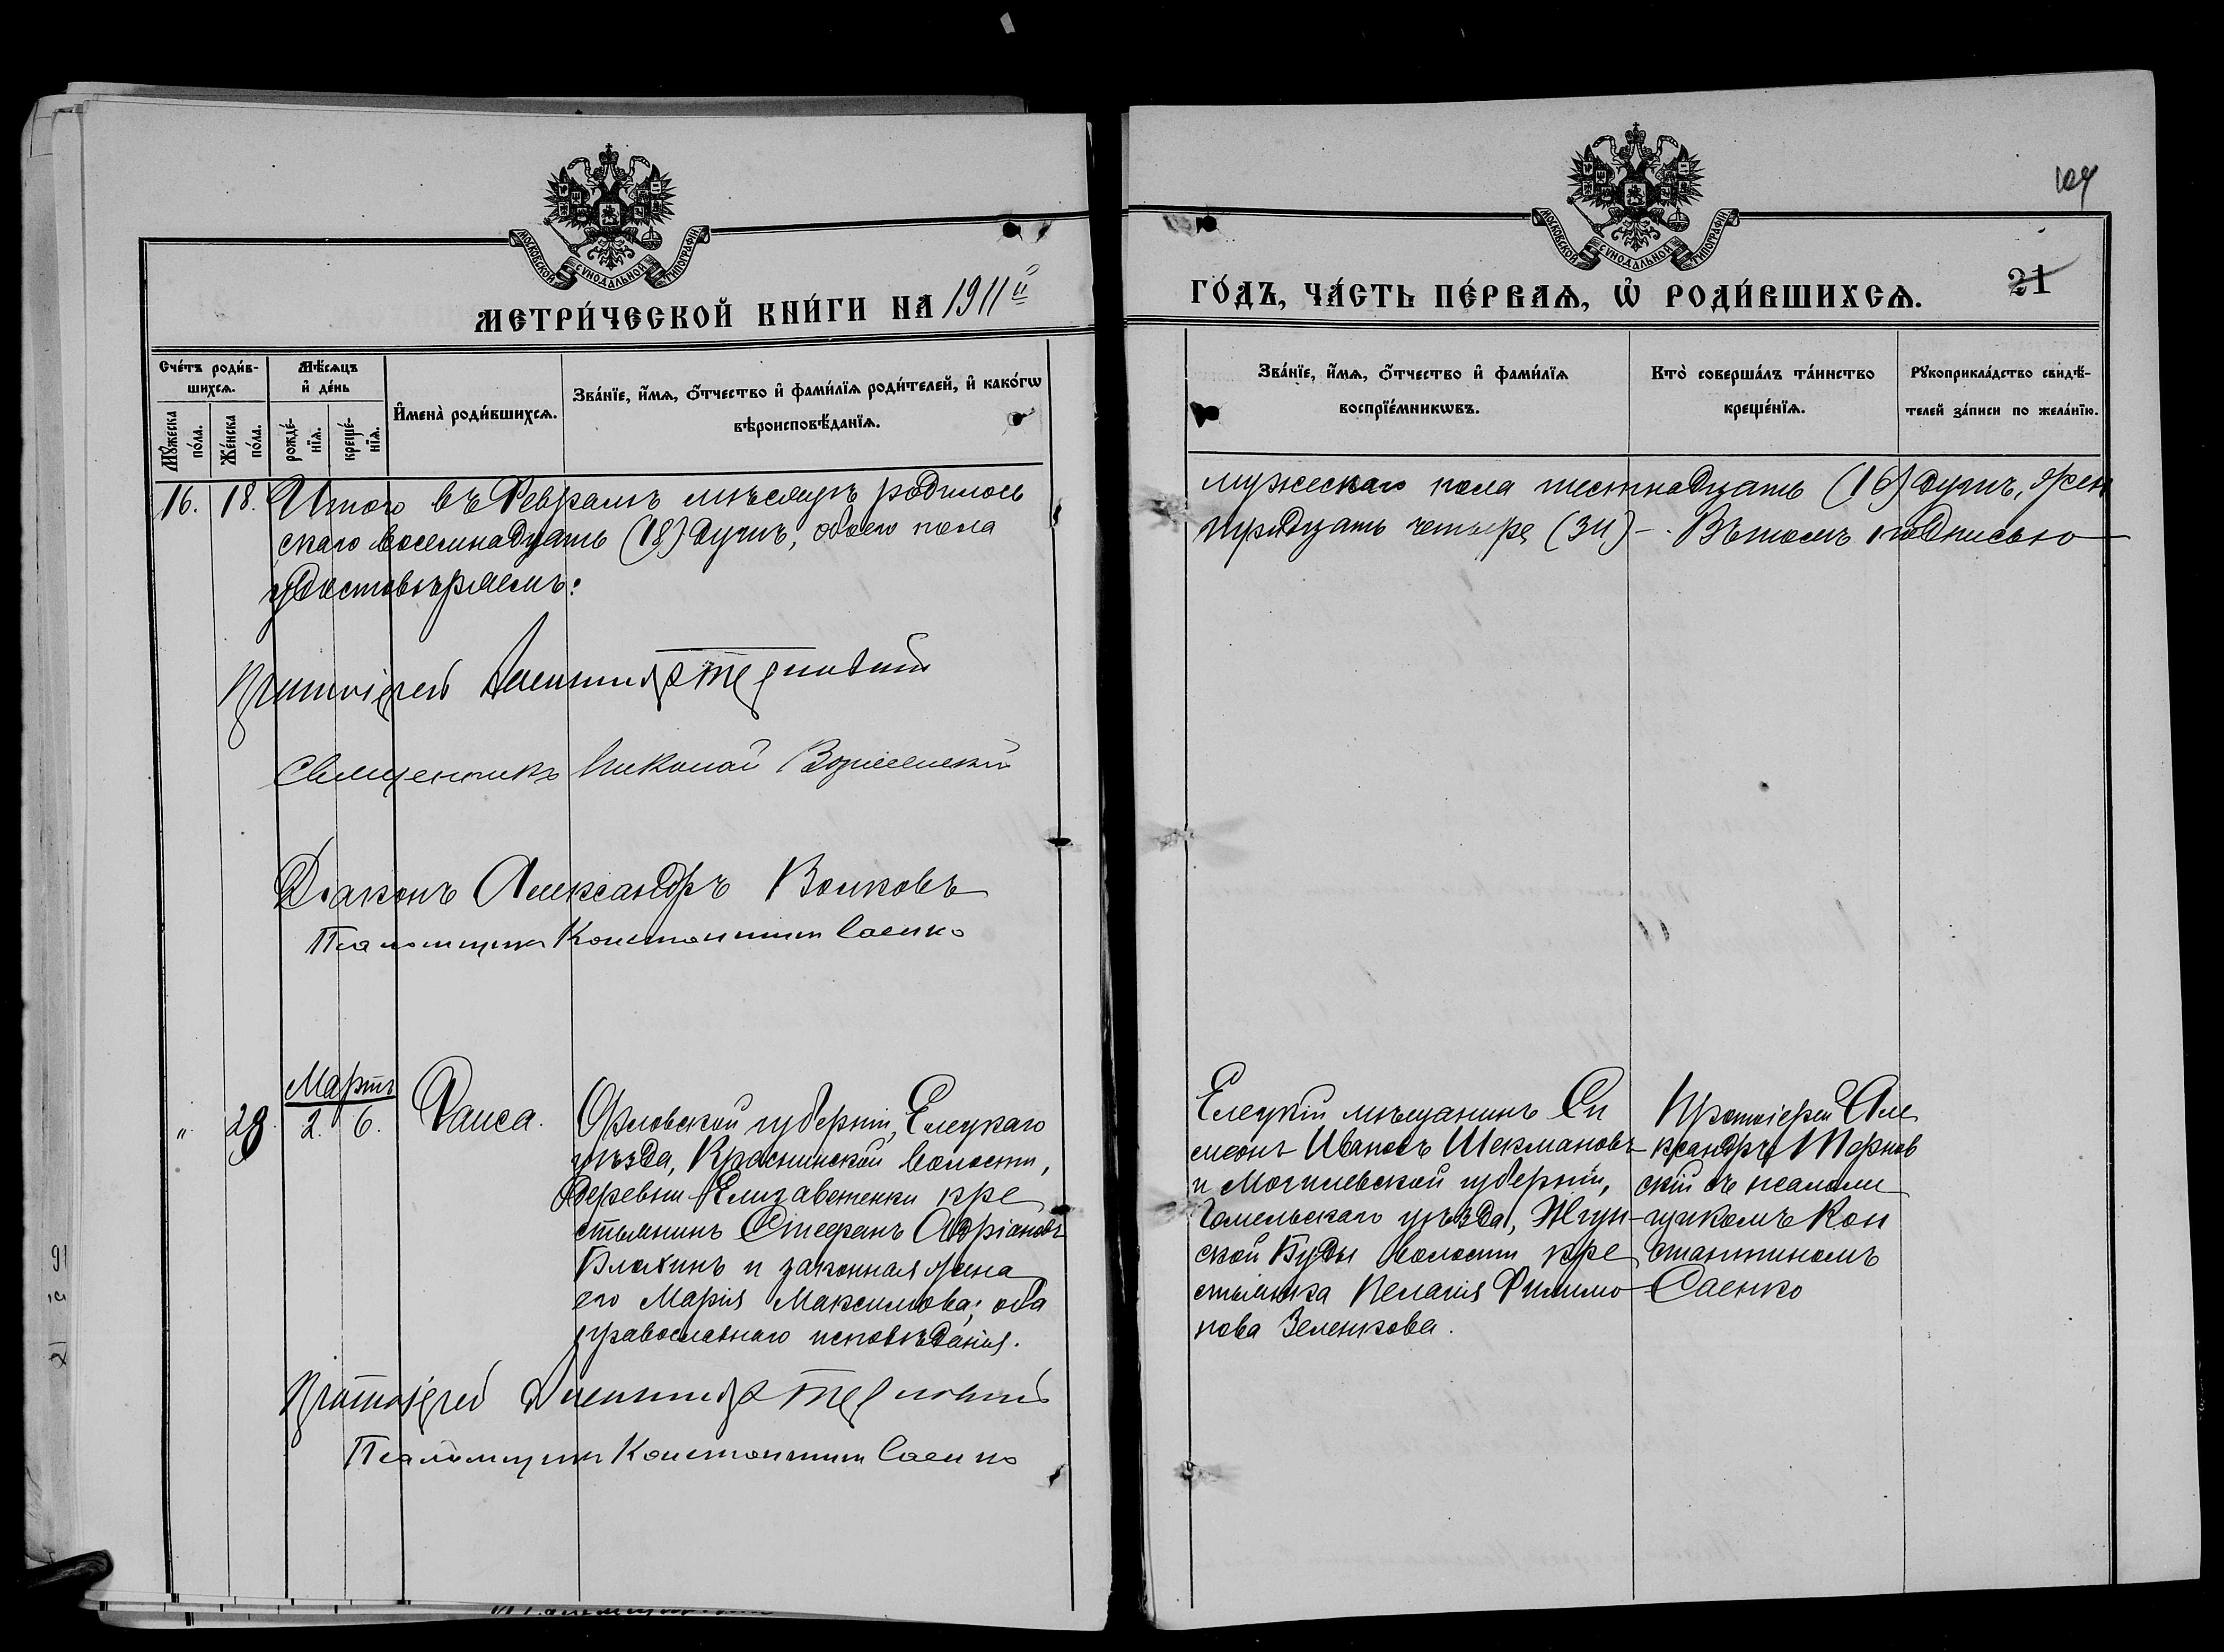 МОСКОВСКОЙ СУНОДАЛЬНОЙ ТИПОГРАФІИ
МЕТРИ́ЧЕСКОЙ КНИ́ГИ НА 1911й
Сче́тъ роди́в-
шихсѧ.
Мꙋ́жеска
по́ла.
Же́нска
по́ла.
Мѣ́сѧцъ
и҆ де́нь
рожде́-
нїѧ.
креще́-
нїѧ.
И҆мена̀ роди́вшихсѧ.
Зва́нїе, и҆́мѧ, ѻ҆́тчество и҆ фами́лїѧ роди́телей, и҆ како́гѡ
вѣроисповѣ́данїѧ.
16. 18. Итого въ Февралѣ мѣсяцѣ родилось
скаго восемнадцать (18) душъ, обоего пола
удостовѣряемъ:
Протоіерей Александръ Терновскій
Священникъ Николай
Діаконъ Александръ Волковъ
Псаломщикъ Константинъ Саенко
Мартъ
„ 28. 2. 6. Раиса. Орловской губерніи, Елецкаго
уѣзда, Краснинской волости,
деревни Елизаветенки кре
стьянинъ Стефанъ Адріановъ
Блохинъ и законная жена
его Марія Максимова; оба
православнаго исповѣданія.
Протоіерей Александръ Терновскій
Псаломщикъ Константинъ Саенко
МОСКОВСКОЙ СУНОДАЛЬНОЙ ТИПОГРАФІИ
21
ГО́ДЪ, ЧА́СТЬ ПЕ́РВАѦ, Ѡ҆ РОДИ́ВШИХСѦ.
Зва́нїе, и҆́мѧ, ѻ҆́тчество и҆ фами́лїѧ
воспрїе́мникѡвъ.
Кто̀ соверша́лъ та́инство
креще́нїѧ.
Рꙋкоприкла́дство свидѣ́-
телей за́писи по жела́нїю.
мужескаго пола шестнадцать (16) душъ, жен
тридцать четыре (34) — Въ томъ подписью
Елецкій мѣщанинъ Си
меонъ Ивановъ Шекмановъ
и Могилевской губерніи,
Гомельскаго уѣзда,
ской Буды волости кре
стьянка Пелагія Филимо
нова Зеленкова.
Протоіерей Але
ксандръ Тернов
скій съ псалом
щикомъ Кон
стантиномъ
Саенко